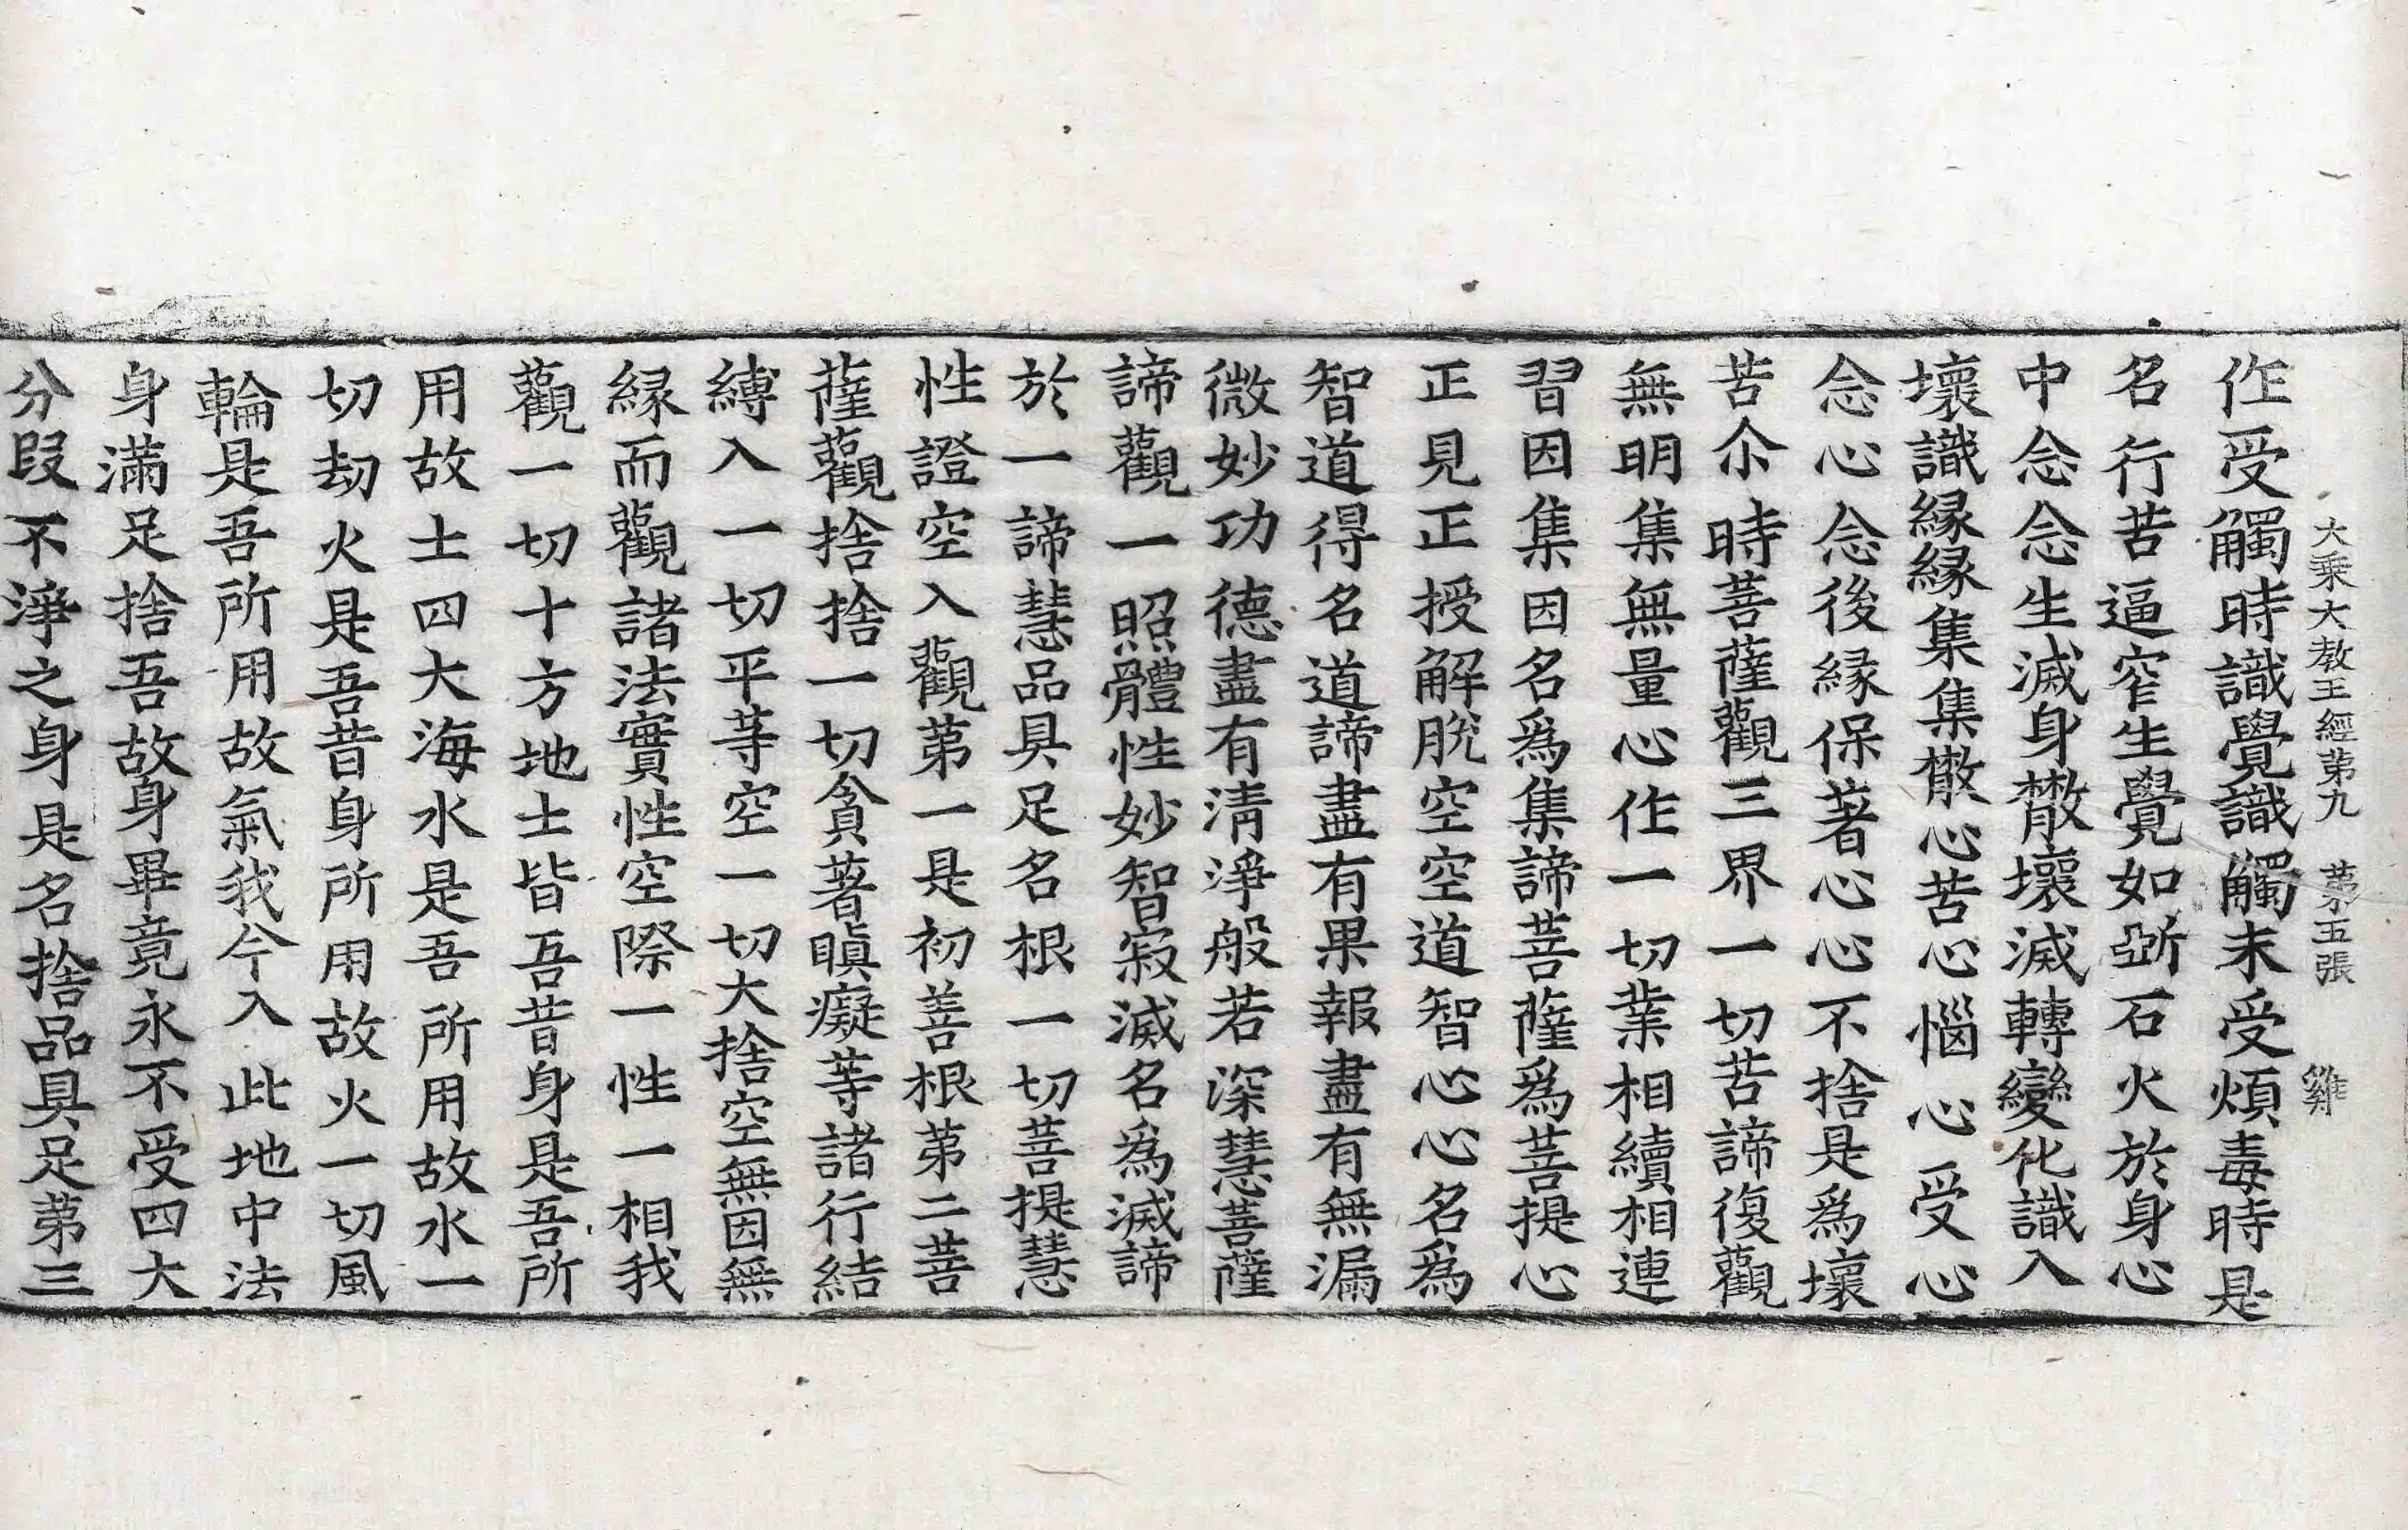 大乘大教王經第九　第五張　雞
作受觸時識覺識觸未受煩毒時是
名行苦逼窄生覺如斲石火於身心
中念念生滅身散壞滅轉變化識入
壞識緣緣集集散心苦心惱心受心
念心念後緣保著心心不捨是爲壞
苦尒時菩薩觀三界一切苦諦復觀
無明集無量心作一切業相續相連
習因集因名爲集諦菩薩爲菩提心
正見正授解脫空空道智心心名爲
智道得名道諦盡有果報盡有無漏
微妙功德盡有淸淨般若深慧菩薩
諦觀一照體性妙智寂滅名爲滅諦
於一諦慧品具足名根一切菩提慧
性證空入觀第一是初善根第二菩
薩觀捨捨一切貪著瞋癡等諸行結
縛入一切平等空一切大捨空無因無
緣而觀諸法實性空際一性一相我
觀一切十方地土皆吾昔身是吾所
用故士四大海水是吾所用故水一
切劫火是吾昔身所用故火一切風
輪是吾所用故氣我今入此地中法
身滿足捨吾故身畢竟永不受四大
分段不淨之身是名捨品具足第三